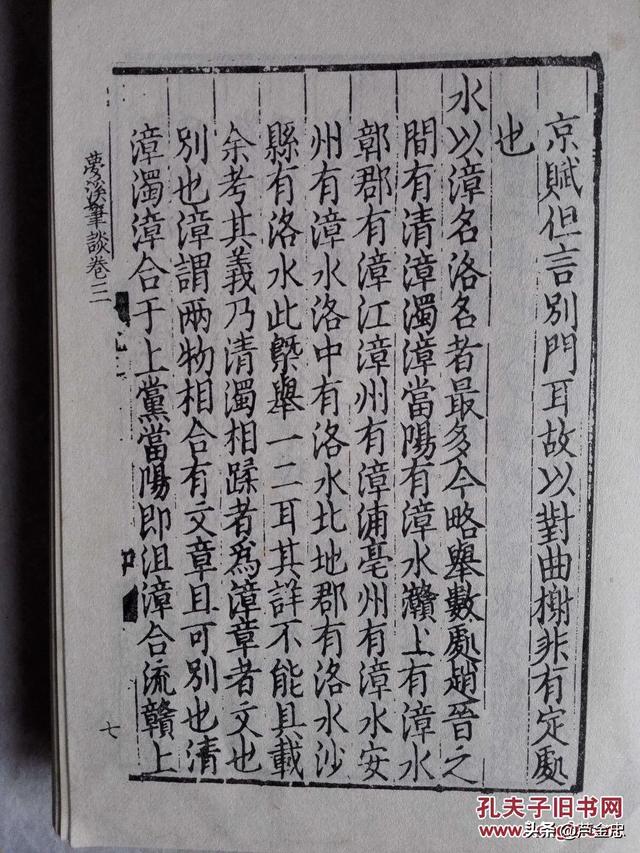 京賦但言別門耳故以對曲榭非有定處
也
水以漳名洛名者最多今略舉數處趙晉之
間有清漳濁漳當陽有漳水灨上有漳水
鄣郡有漳江漳州有漳浦亳州有漳水安
州有漳水洛中有洛水北地郡有洛水沙
縣有洛水此槩舉一二耳其詳不能具載
余考其義乃清濁相蹂者為漳章者文也
別也漳謂兩物相合有文章且可別也清
漳濁漳合于上黨當陽即沮漳合流贛上
夢溪筆談卷三
七
孔夫子旧书网
头条